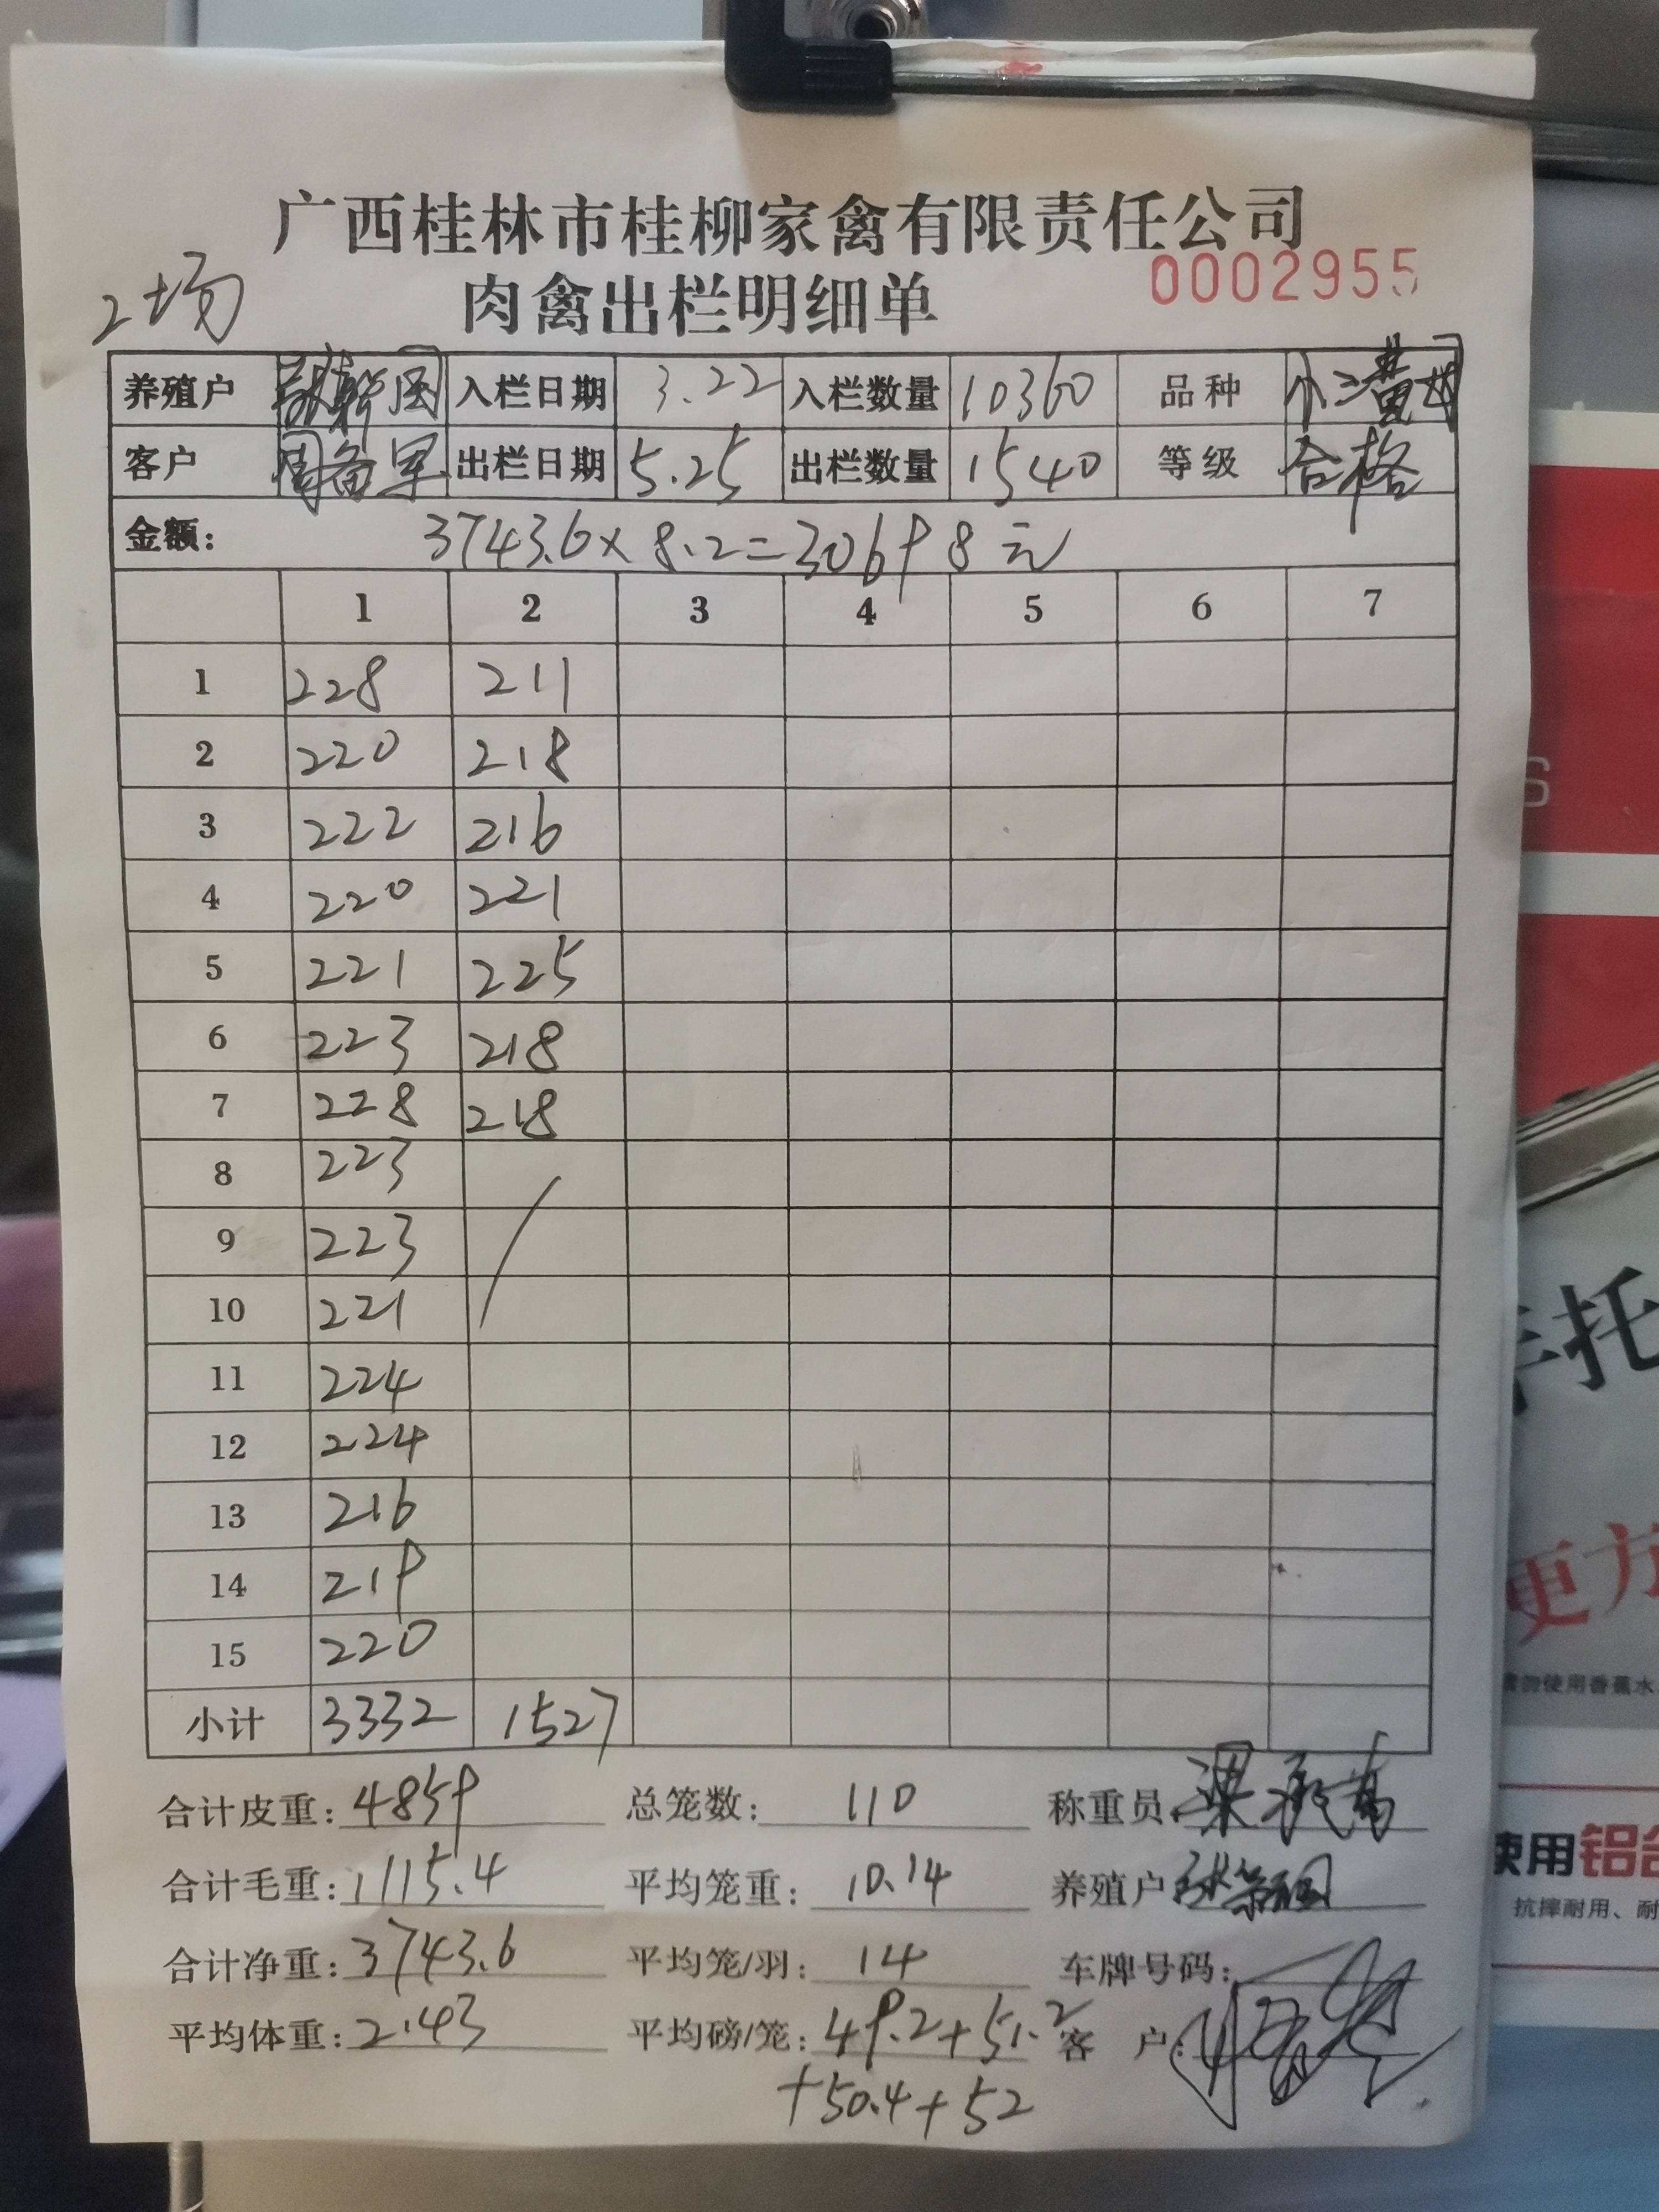 广西桂林市桂柳家禽有限责任公司
2场 肉禽出栏明细单 0002955
养殖户 入栏日期 3.22 入栏数量 10360 品种 小二黄母
客户 周备军 出栏日期 5.25 出栏数量 1540 等级 合格
金额: 3743.6×8.2=30698元
1 2 3 4 5 6 7
1 228 211
2 220 218
3 222 216
4 220 221
5 221 225
6 223 218
7 228 218
8 223
9 223
10 221
11 224
12 224
13 216
14 219
15 220
小计 3332 1527
合计皮重: 4859 总笼数: 110 称重员:
合计毛重: 1115.4 平均笼重: 10.14 养殖户
合计净重: 3743.6 平均笼/羽: 14 车牌号码:
平均体重: 2.43 平均磅/笼: 49.2+51.2 客 户:
+50.4+52
S
托
更方
请勿使用香蕉水
使用铝合
抗摔耐用、耐